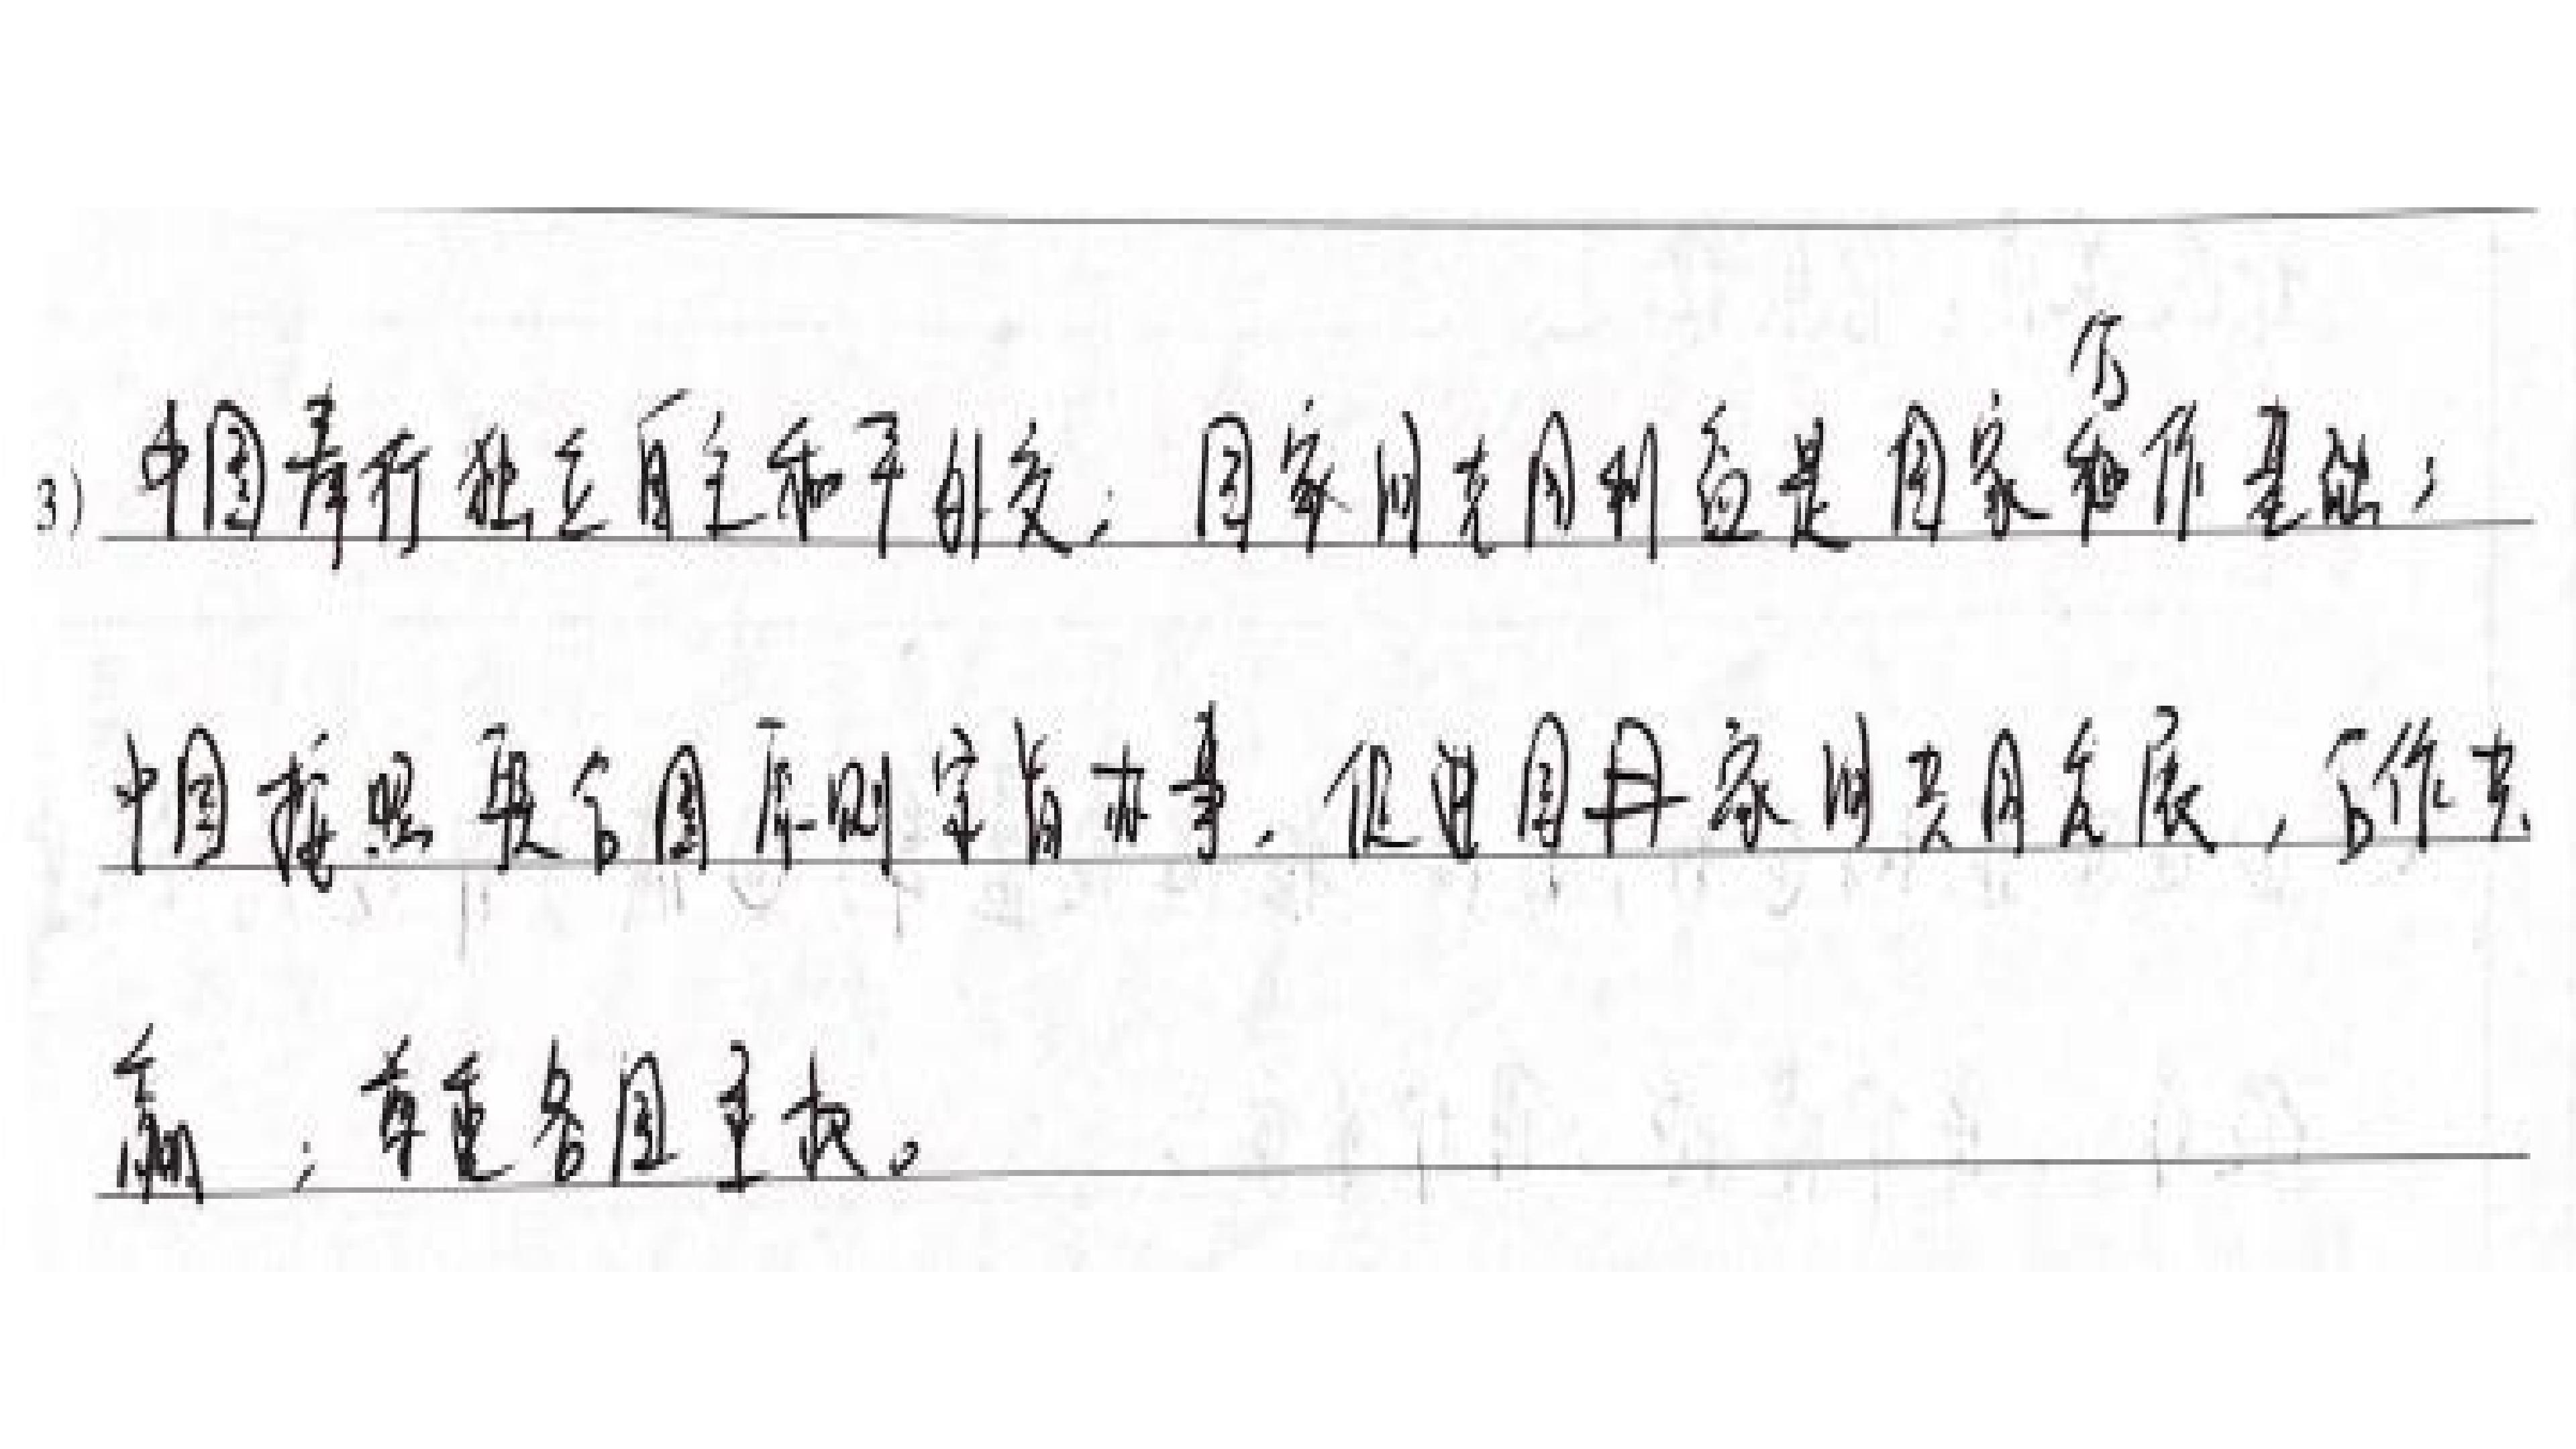 3) 中国奉行独立自主和平外交;国家间共同利益是国家合作基础;
中国按照联合国原则宗旨办事,促进国家间共同发展,合作共
赢;尊重各国主权。